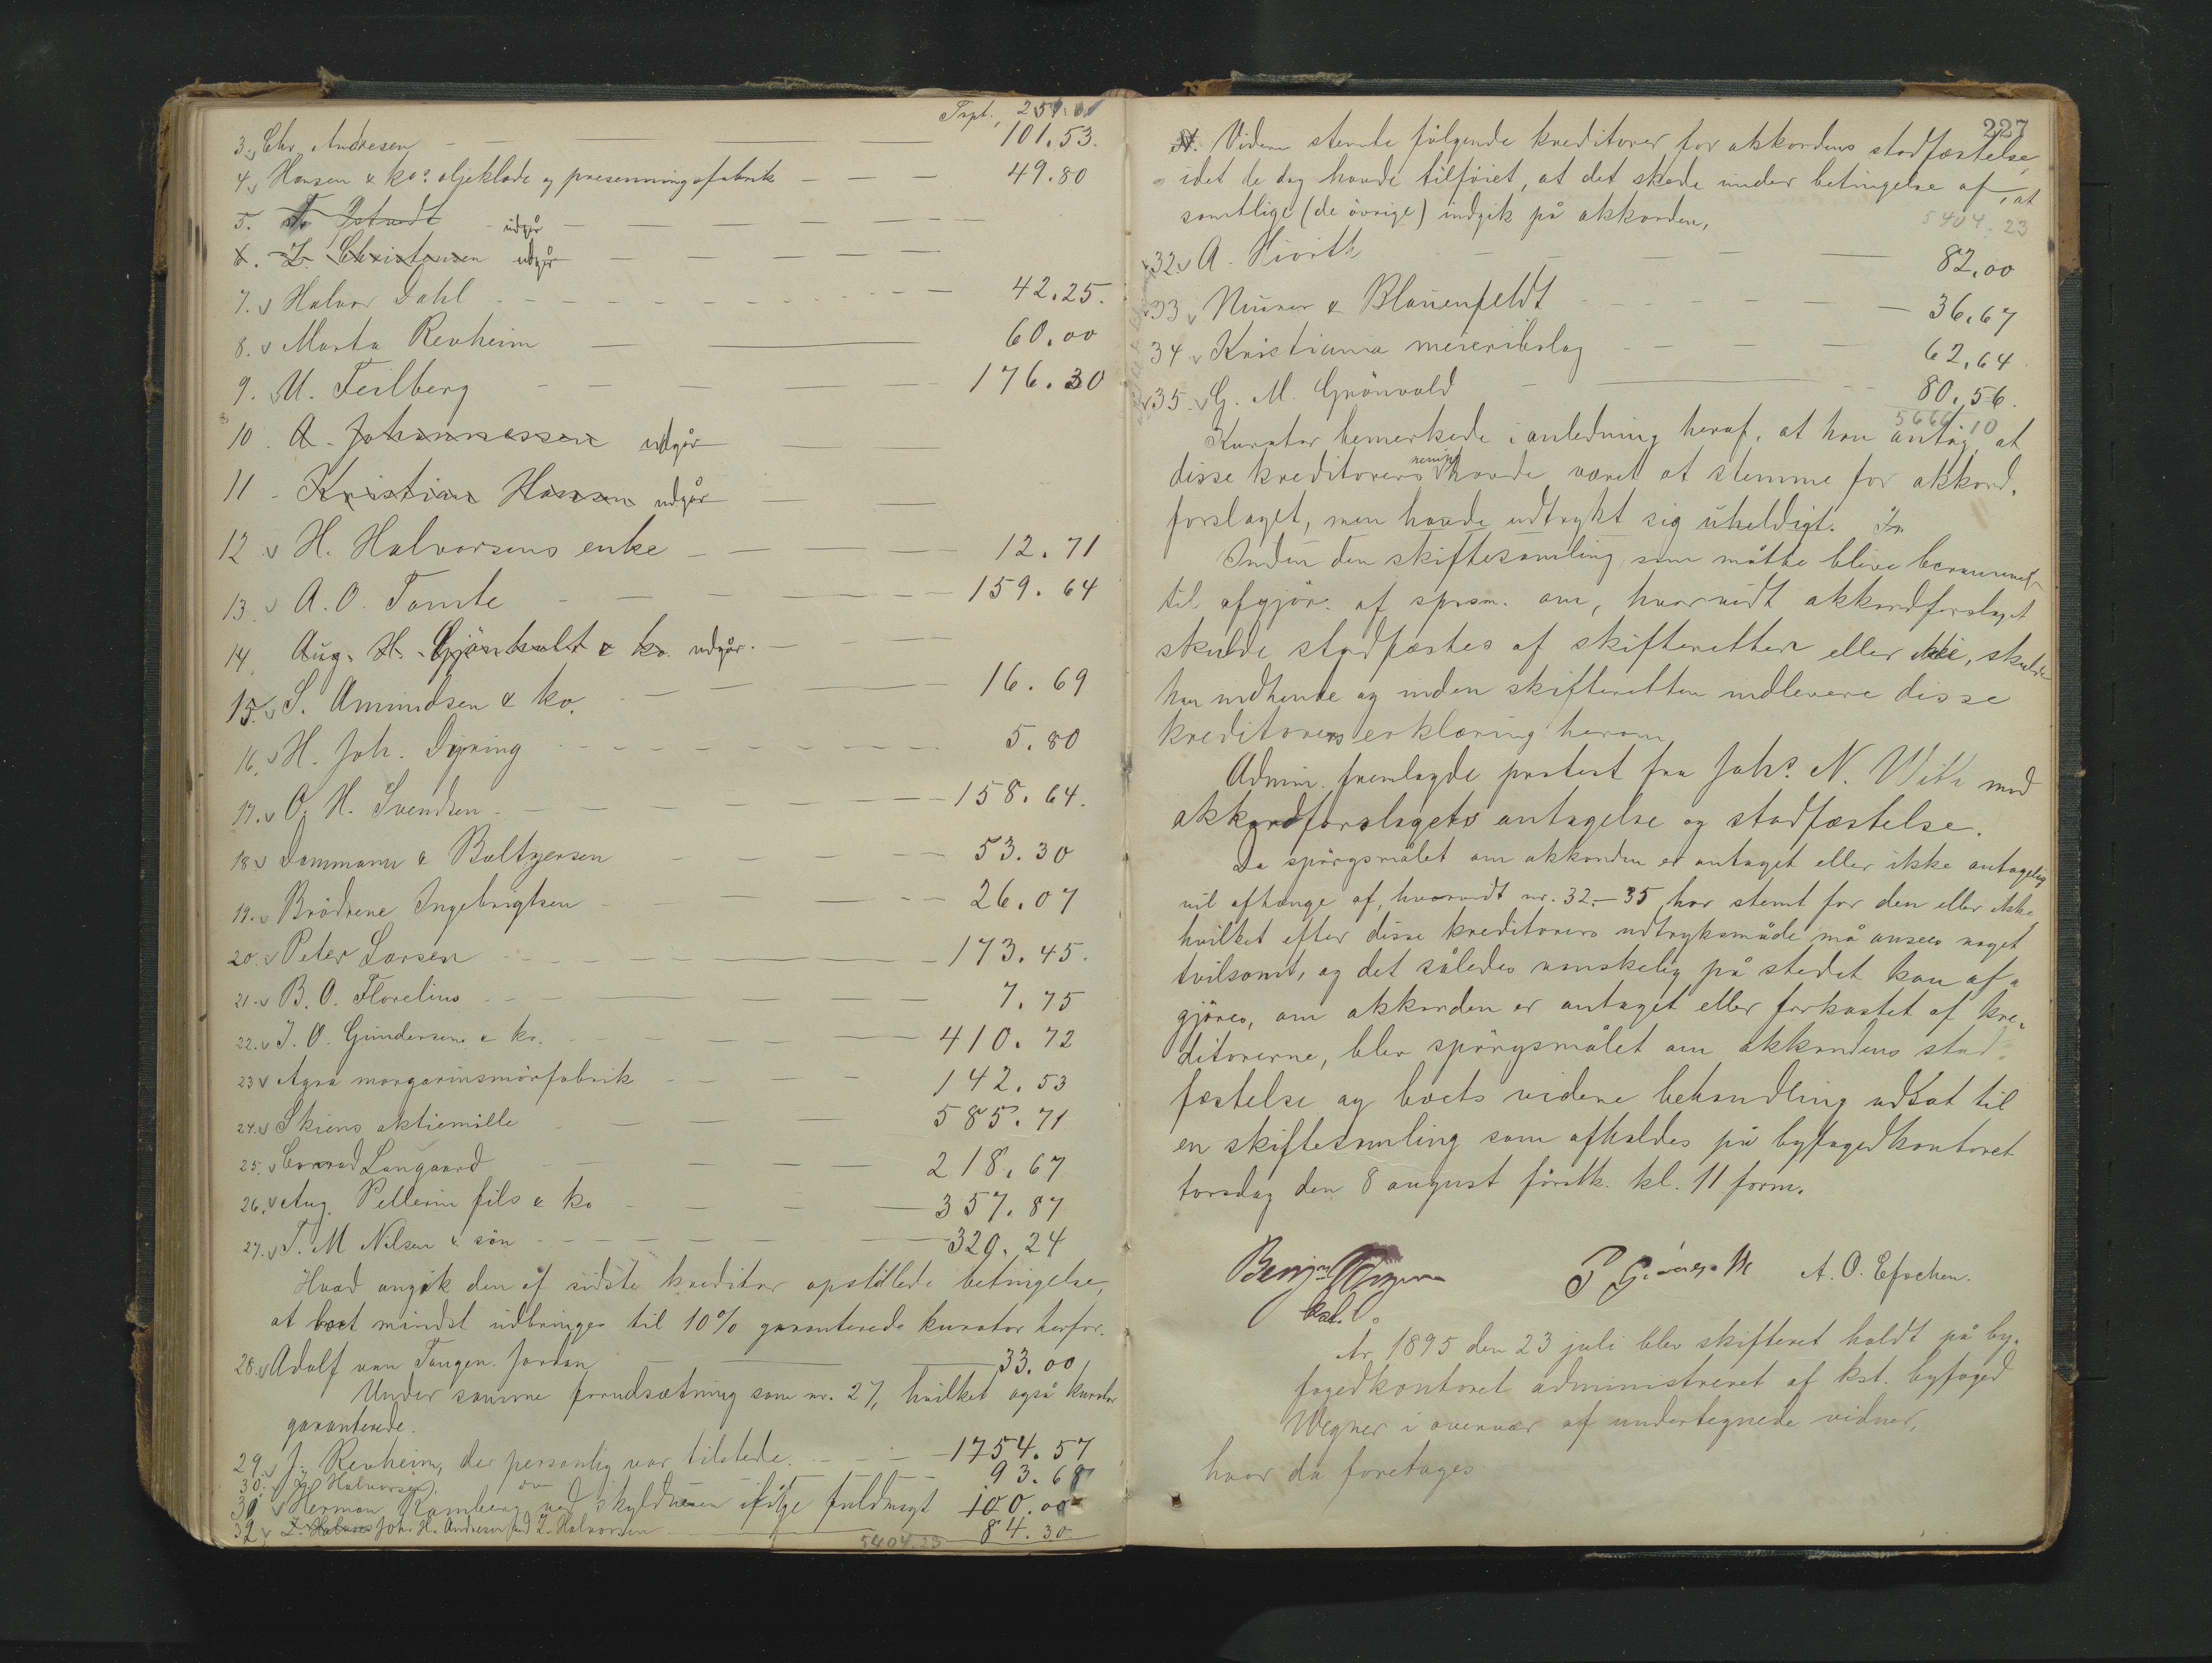 Trpt., 251.61
3. Chr. Andresen 101.53.
4. Hansen & kos oljeklæde og presenningsfabrik 49.80
5. udgår
6. Z. Christensen udgår
7. Halvor Dahl 42.25.
8. Marta Revheim 60.00
9. U. Feilberg 176.30
10. A. Johannessen udgår
11 Kristian Hansen udgår
12 H. Halvorsens enke 12.71
13. A. O. Tomte 159.64
14. Aug. H. & ko. udgår.
15. S. Amundsen & ko. 16.69
16. H. Joh. Dyring 5.80
17. O. H. Svendsen 158.64.
18. Dammann & Baltzersen 53.30
19. Brødrene Ingebrigtsen 26.07
20. Peter Larsen 173.45.
21. B. O. Florelius 7.75
22. J. O. Gundersen & ko. 410.72
23 Agra margarinsmörfabrik 142.53
24. Skiens aktiemølle 585.71
25. Conrad Langaard 218.67
26. Aug. Pellerin fils & ko 357.87
27. T. M Nilsen & søn 320.24
Hvad angik den af sidste kreditor opstillede betingelse,
at boet mindst udbringes til 10% garanterede kurator herfor.
28. Adolf van Tangen. Jordan 33.00
Under samme forudsætning som nr. 27, hvilket også kurator
garanterede.
29. J. Revheim, der personlig var tilstede. 1754.57
30. Halvorsen 93.68
31 Herman Ramberg ved skyldneren ifölge fuldmagt 100.00
32 Joh. H. Andresen ved Z. Halvorsen 84.30
5404.23
227
Videre stemte fölgende kreditorer for akkordens stadfæstelse,
idet de dog havde tilföiet, at det skede under betingelse af, at
samtlige (de övrige) indgik på akkorden,
5404.23
32. A. Hiorth 82.00
33 & Blauenfeldt 36.67
34 Kristiania meieribolag 62.64
35. G. M. Grönvold 80.56.
5666.10
Kurator bemerkede i anledning heraf, at han antog, at
disse kreditorers mening havde været at stemme for akkord-
forslaget, men havde udtrykt sig uheldigt.
Inden den skiftesamling, som måtte blive berammet
til afgjör. af spsm. om, hvorvidt akkordforslaget
skulde stadfæstes af skifteretten eller ikke, skulde
han indhente og inden skifteretten indlevere disse
kreditorers erklæring herom
Admin. fremlagde protest fra Johs. N. With mod
akkordforslagets antagelse og stadfæstelse.
Da spörgsmålet om akkorden er antaget eller ikke antagelig
vil afhænge af, hvorvidt nr. 32.–35 har stemt for den eller ikke,
hvilket efter disse kreditorers udtryksmåde må ansees noget
tvilsomt, og det således vanskelig på stedet kan af-
gjöres, om akkorden er antaget eller forkastet af kre-
ditorerne, blev spörgsmålet om akkordens stad-
fæstelse og boets videre behandling udsat til
en skiftesamling som afholdes på byfogedkontoret
torsdag den 8 august förstk. kl. 11 form.
Benj. Wegner
kst.
A. O. Efschen.
År 1895 den 23 juli blev skifteret holdt på by-
fogedkontoret administreret af kst. byfoged
Wegner i overvær af undertegnede vidner,
hvor da foretages